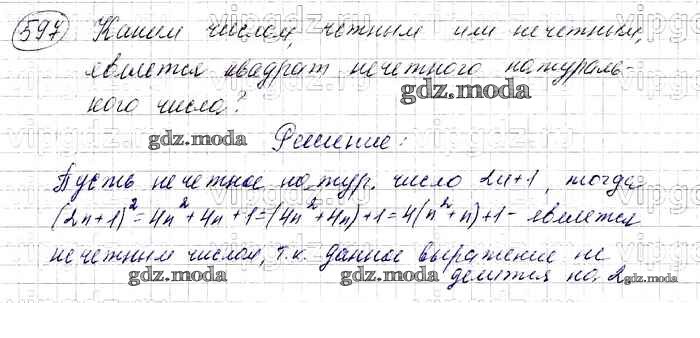 597 Каким числом, четным или нечетным,
является квадрат нечетного натураль-
ного числа?
gdz.moda
gdz.moda Решение:
Пусть нечетное натур. число 2n+1, тогда
(2n+1)² = 4n² + 4n + 1 = (4n² + 4n) + 1 = 4(n² + n) + 1 - является
нечетным числом, т.к. данное выражение не
делится на 2
gdz.moda gdz.moda gdz.moda